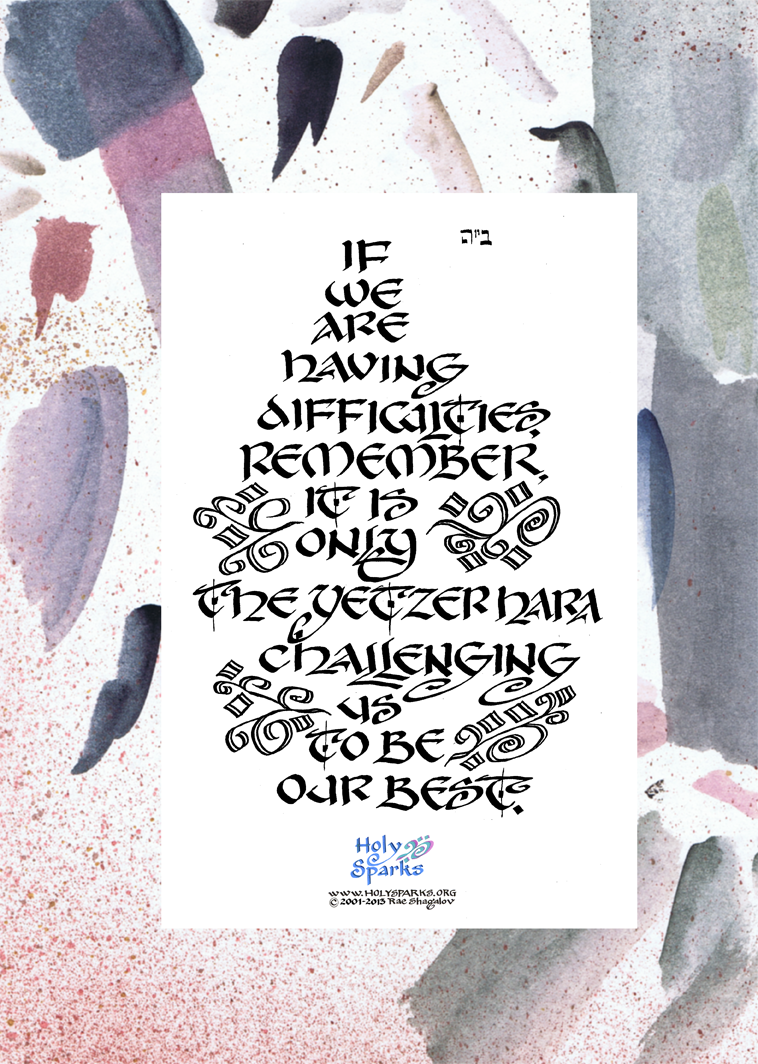 ב״ה
IF
WE
ARE
HAVING
DIFFICULTIES,
REMEMBER,
IT IS
ONLY
THE YETZER HARA
CHALLENGING
US
TO BE
OUR BEST.
Holy
Sparks
WWW.HOLYSPARKS.ORG
© 2001-2013 Rae Shagalov